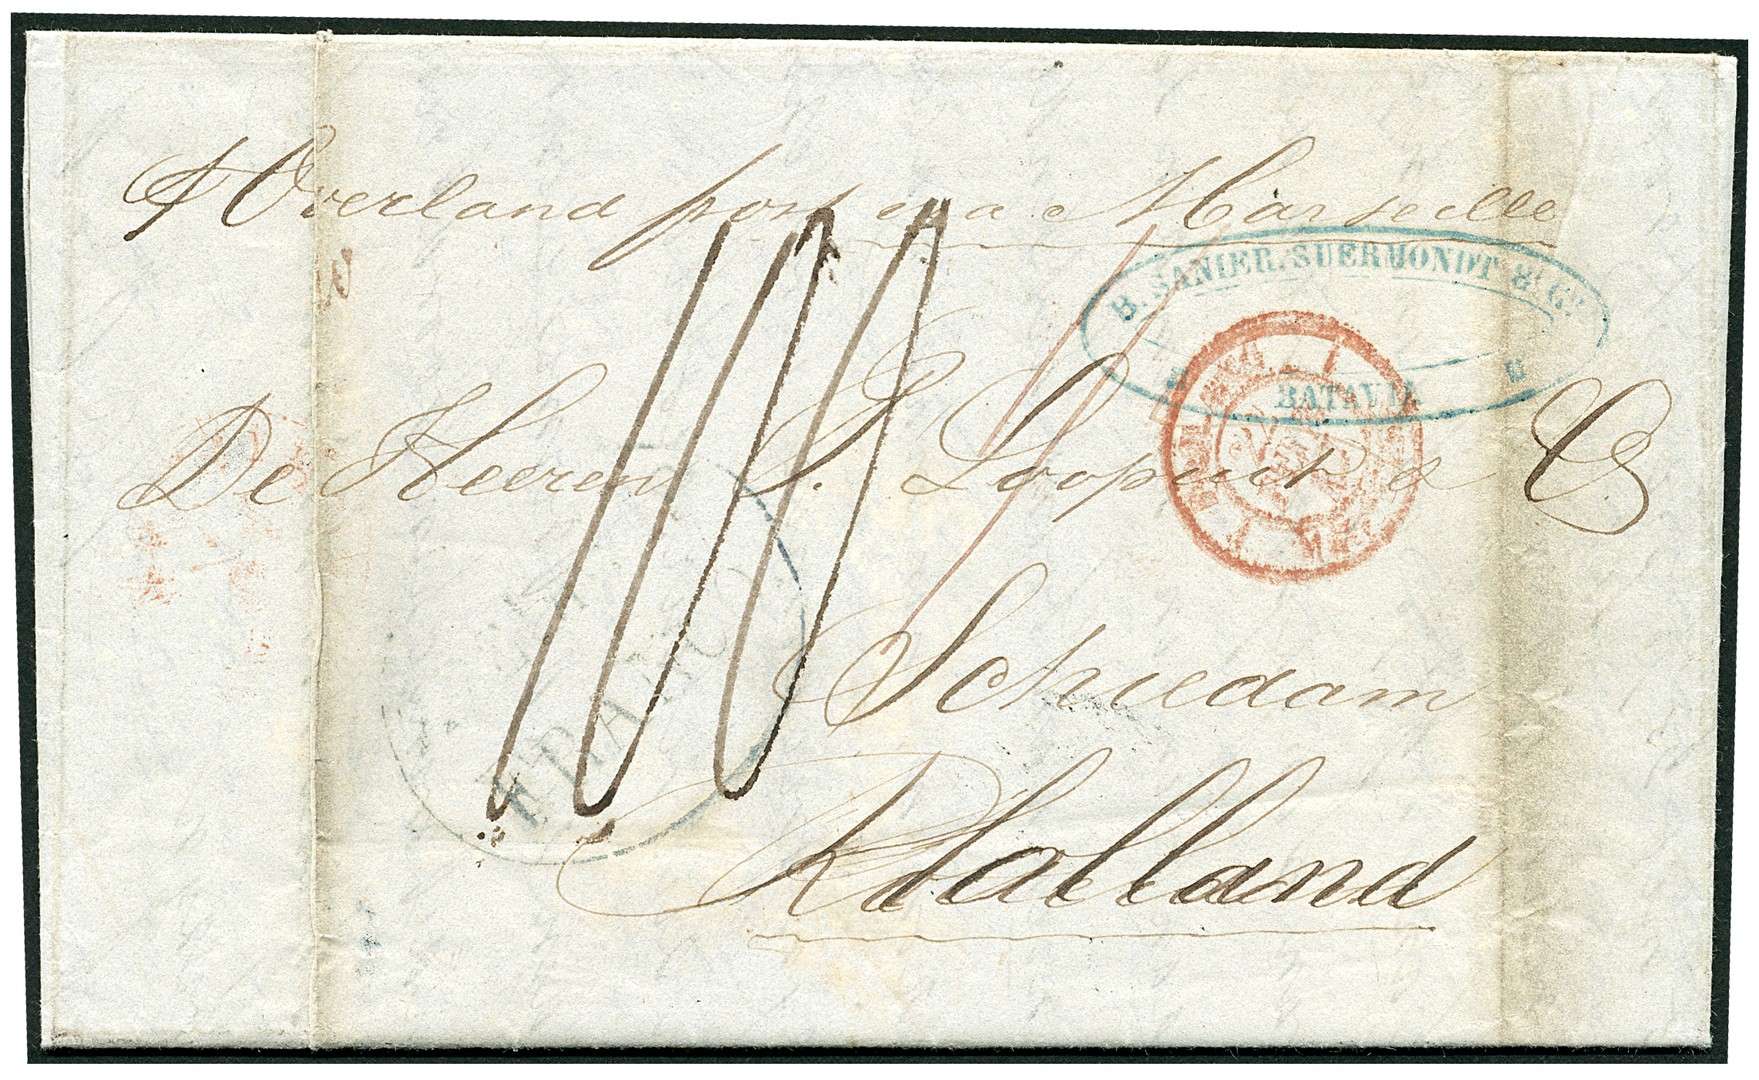 p Overland post via Marseille
B. SANIER, SUERMONDT & Co.
BATAVIA
De Heeren J. Loopuit & Co
FRANCO
Schiedam
Holland